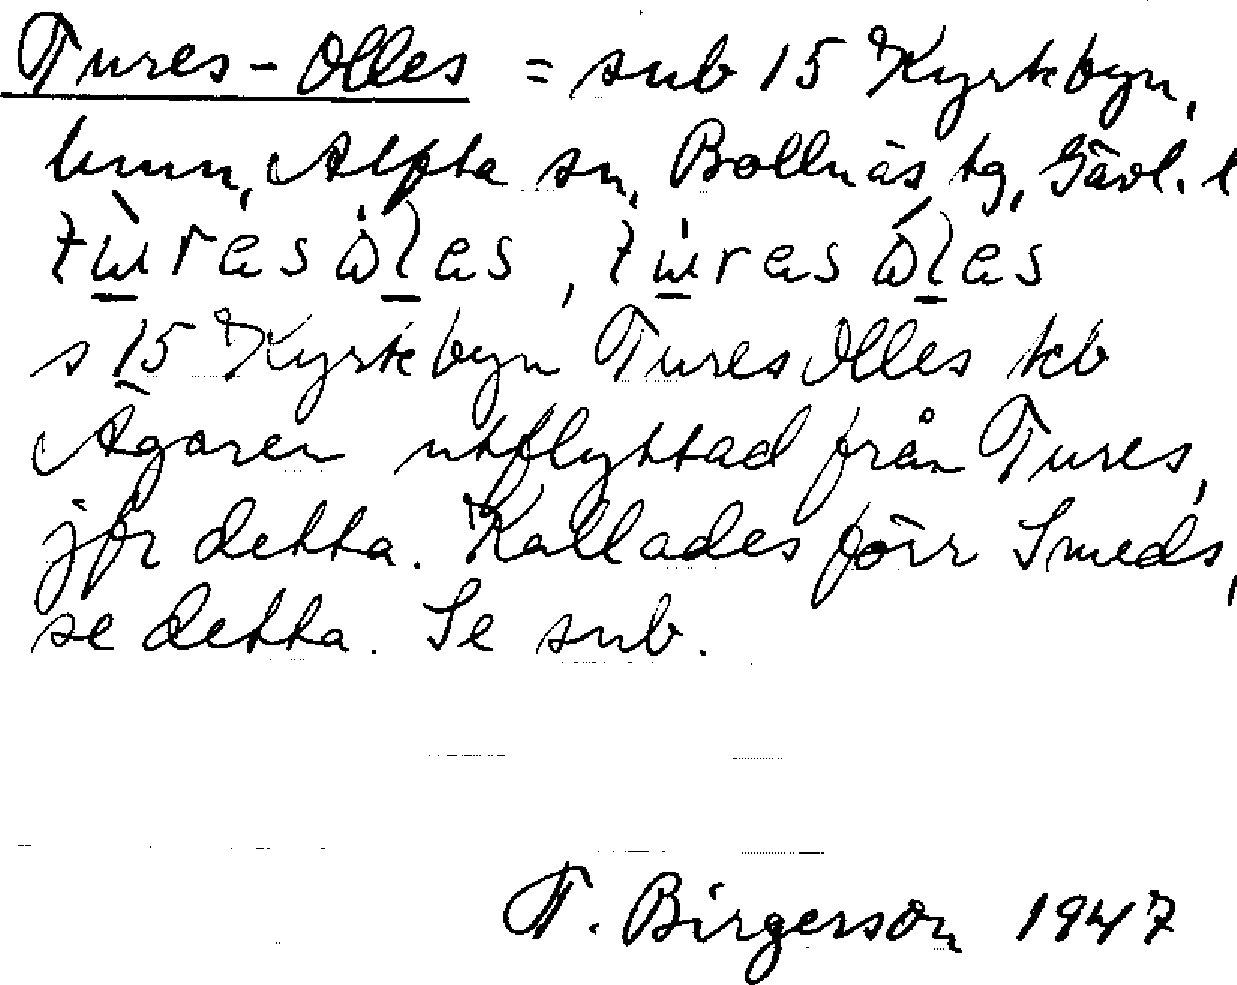 Tures-Olles = sub 15 Kyrkbyn,
hmn, Alfta sn, Bollnäs tg, Gävl. l
s 15 Kyrkbyn Tures Olles kb
Ägaren utflyttad från Tures,
jfr detta. Kallades förr Smeds,
se detta. Se sub.
T. Birgerson 1947